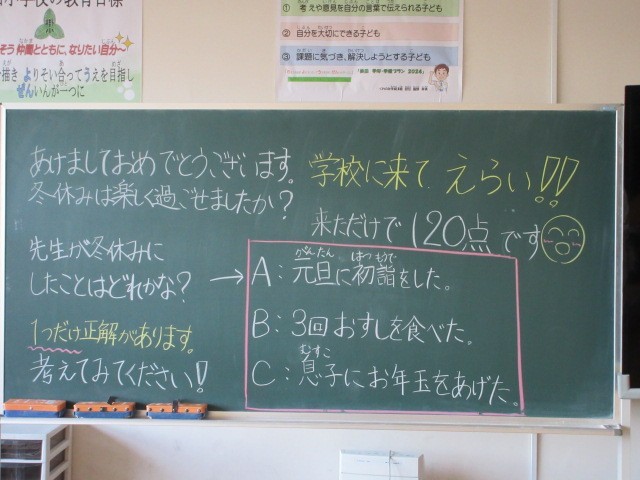 小学校の教育目標
そう 仲間とともに、なりたい自分へ
描き よりそい合ってうえを目指し
ぜんいんが一つに
① 考えや意見を自分の言葉で伝えられる子ども
② 自分を大切にできる子ども
③ 課題に気づき、解決しようとする子ども
あけましておめでとうございます。
冬休みは楽しく過ごせましたか？
学校に来て えらい!!
来ただけで 120点 です
先生が冬休みに
したことはどれかな？
→
1つだけ正解があります。
考えてみてください！
A：元旦に初詣をした。
がんたん はつもうで
B：3回おすしを食べた。
C：息子にお年玉をあげた。
むすこ